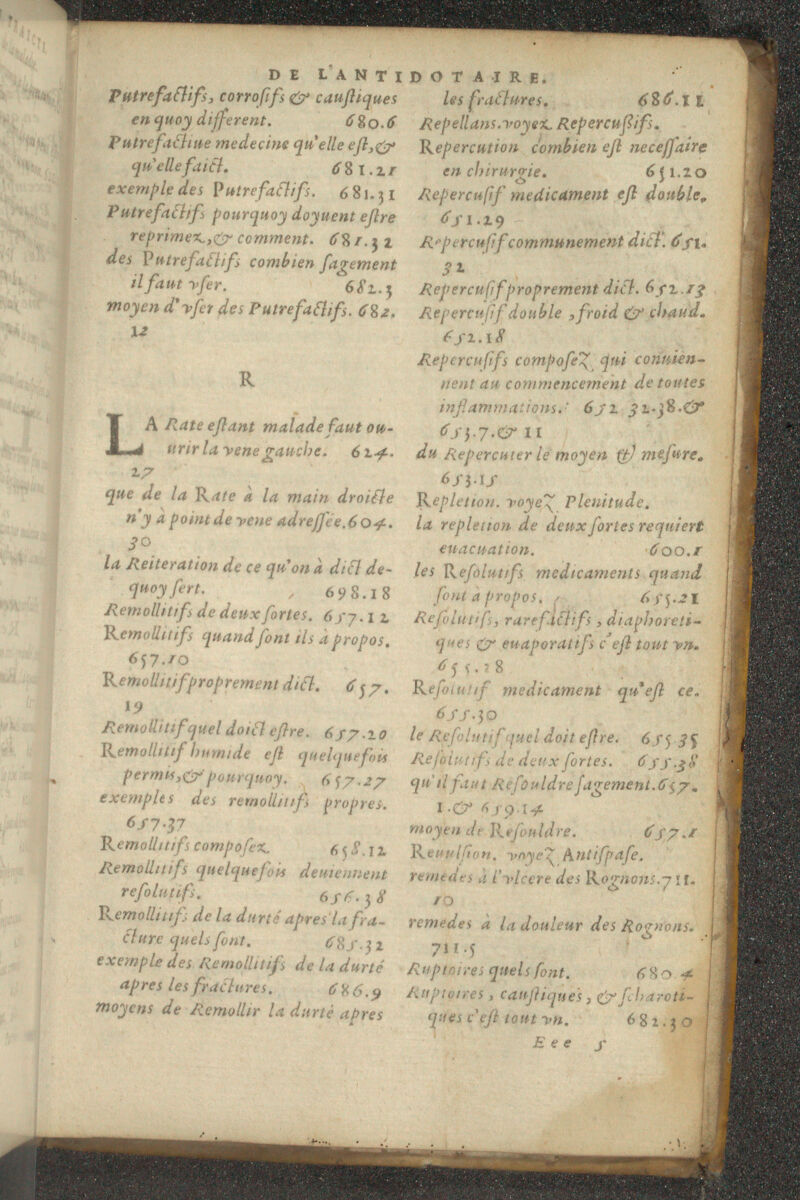 DE L'ANTIDOTAIRE.
Putrefactifs, corrosifs & caustiques
en quoy different. 680.6
Putrefactiue medecine qu'elle est,&
qu'elle faict. 681.21
exemple des Putrefactifs. 681.31
Putrefactifs pourquoy doyuent estre
reprimez,& comment. 681.32
des Putrefactifs combien sagement
il faut vser. 682.3
moyen d'vser des Putrefactifs. 682.
12
R
LA Rate estant malade faut ou-
urir la vene gauche. 624.
27
que de la Rate à la main droicte
n'y à point de vene adressée. 604.
30
la Reiteration de ce qu'on à dict de-
quoy sert. 698.18
Remollitifs de deux sortes. 657.12
Remollitifs quand sont ils à propos.
657.10
Remollitif proprement dict. 657.
19
Remollitif quel doict estre. 657.20
Remollitif humide est quelquefois
permis,& pourquoy. 657.27
exemples des remollitifs propres.
657.37
Remollitifs composez. 658.12
Remollitifs quelquefois deuiennent
resolutifs. 656.38
Remollitifs de la durté apres la fra-
cture quels sont. 685.32
exemple des Remollitifs de la durté
apres les fractures. 686.9
moyens de Remollir la durté apres
les fractures. 686.11
Repellans. voyez Repercussifs.
Repercution combien est necessaire
en chirurgie. 651.20
Repercusif medicament est double.
651.29
Repercusif communement dict. 651.
32
Repercusif proprement dict. 652.13
Repercusif double, froid & chaud.
652.18
Repercusifs composez qui conuien-
nent au commencement de toutes
inflammations. 652 32.38.&
653.7.& 11
du Repercuter le moyen & mesure.
653.15
Repletion. voyez Plenitude.
la repletion de deux sortes requiert
euacuation. 600.1
les Resolutifs medicaments quand
sont à propos. 655.21
Resolutifs, rarefactifs, diaphoreti-
ques & euaporatifs c'est tout vn.
655.28
Resolutif medicament qu'est ce.
655.30
le Resolutif quel doit estre. 655 35
Resolutifs de deux sortes. 655.38
qu'il faut Resouldre sagement. 657.
1.& 659.14
moyen de Resouldre. 657.1
Reuulsion. voyez Antispase.
remedes à l'vlcere des Rognons. 711.
10
remedes à la douleur des Rognons.
711.5
Ruptoires quels sont. 680 4
Ruptoires, caustiques, & scharoti-
ques c'est tout vn. 682.30
Eee 5